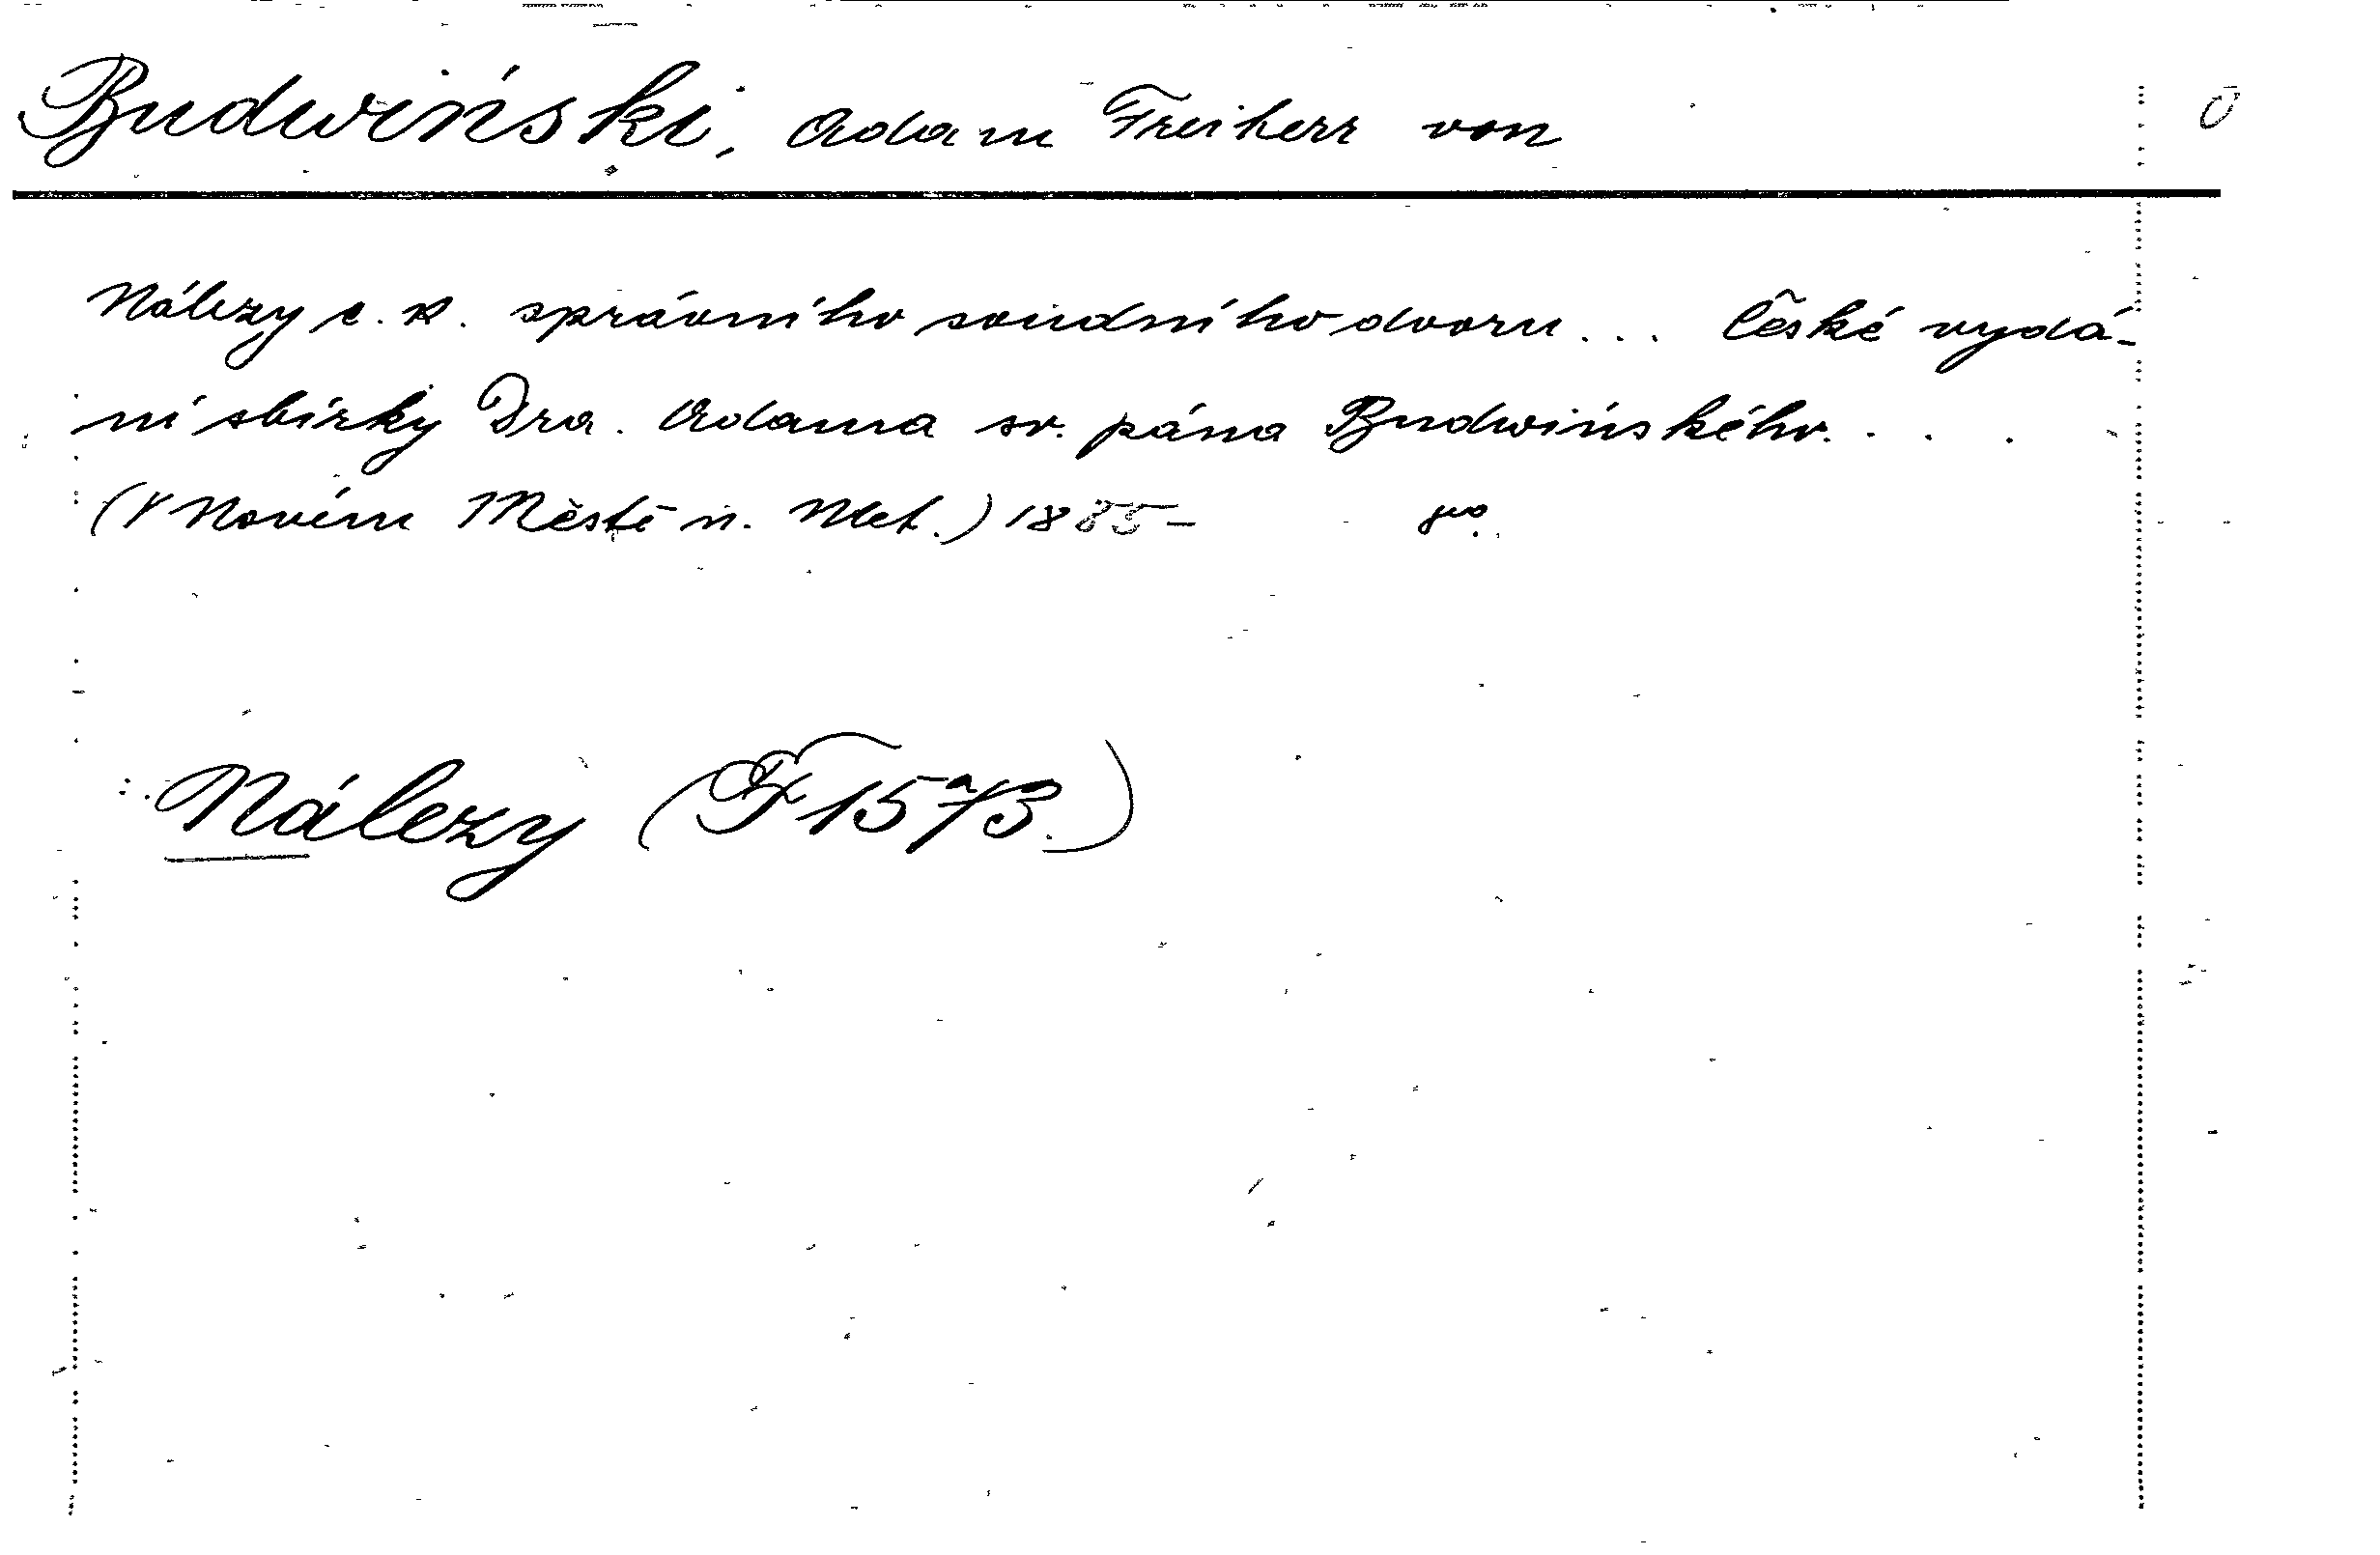 Budwiński, Adam Freiherr von
Nálezy c. k. správního soudního dvoru ... České vydá-
ní sbírky Dra. Adama sv. pána Budwińského. . . .
(V Novém Městě n. Met.) 1885- 8°.
Nálezy (F 1573.)